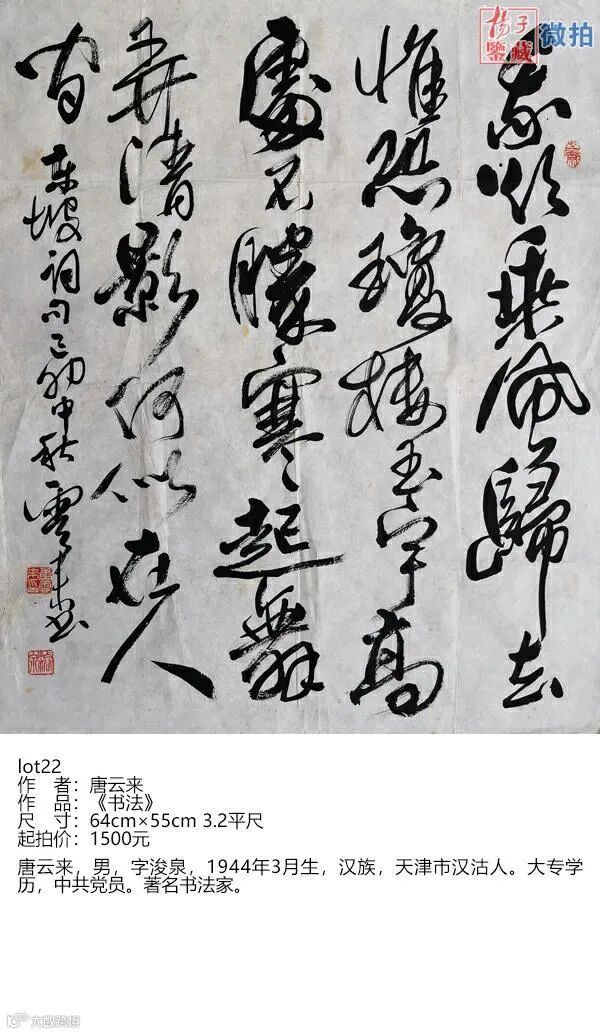 揚子
鑒藏
微拍
我欲乘風歸去
惟恐瓊樓玉宇高
處不勝寒起舞
弄清影何似在人
间
東坡詞句己卯中秋雲来書
lot22
作 者：唐云来
作 品：《书法》
尺 寸：64cm×55cm 3.2平尺
起拍价：1500元
唐云来，男，字浚泉，1944年3月生，汉族，天津市汉沽人。大专学
历，中共党员。著名书法家。
大数跨境